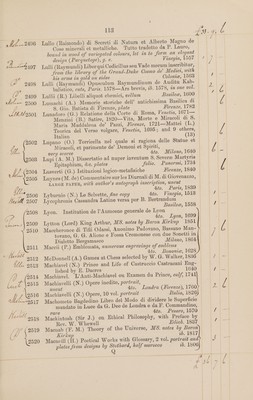 113
2496 Lullo (Raimundo) di Secreti di Natura et Alberto Magno de
Cose minerali et metalliche. Tutto tradotto da P. Lauro,
bound in wood of variegated colours, let in to form an elegant
design (Parquetage), g. e. Vinegia, 1557
2497 Lulli (Raymundi) Liber qui Codicillus seu Vade mecum inscribitur,
from the library of the Grand-Duke Cosmo de' Medici, with
his arms in gold on sides Coloniæ, 1563
2498 Lulli (Raymundi) Opusculum Raymundinum de Auditu Kab-
balistico, cuts, Paris, 1578—Ars brevis, ib. 1578, in one vol.
2499 Lullii (R.) Libelli aliquot chemici, vellum Basileæ, 1600
2500 Lumachi (A.) Memorie storiche dell' antichissima Basilica di
S. Gio. Batista di Firenze, plate Firenze, 1782
2501 Lunadoro (G.) Relatione della Corte di Roma, Venetia, 1671—
Minerbti (B.) Satire, 1820—Vita, Morte e Miracoli di S.
Maria Maddalena de' Pazzi, Firenze, 1721—Mutoni (L.)
Teorica del Verso volgare, Venetia, 1806; and 9 others,
Italian (13)
2502 Lupano (O.) Torricella nel quale si ragiona delle Statue et
Miracoli, et parimente de' Demoni et Spiriti,
very scarce 4to. Milano, 1540
2503 Lupi (A. M.) Dissertatio ad nuper inventum S. Severæ Martyris
Epitaphium, fine plates folio. Panormi, 1734
2504 Lusverti (G.) Istituzioni logico-metafisiche Firenze, 1840
2505 Luynes (M. de) Commentaire sur les Diurnali de M. di Giovenazzo,
LARGE PAPER, with author's autograph inscription, uncut
4to. Paris, 1839
2506 Lyburnio (N.) La Selvetta, fine copy 4to. Vinegia, 1513
2507 Lycophronis Cassandra Latine versa per B. Bertrandum
Basileæ, 1558
2508 Lyon. Institution de l'Aumosne generale de Lyon
4to. Lyon, 1699
2509 Lytton (Lord) King Arthur, MS. notes by Baron Kirkup 1851
2510 Maccheronee di Tifi Odassi, Anonimo Padovano, Bassano Man-
tovano, G. G. Alione e Fossa Cremonese con due Sonetti in
Dialetto Bergamasco Milano, 1864
2511 Macci (P.) Emblemata, numerous engravings of emblems
4to. Bononiæ, 1628
2512 McDonnell (A.) Games at Chess selected by W. G. Walker, 1836
2513 Machiavel (N.) Prince and Life of Castruccio Castracani Eng-
lished by E. Dacres 1640
2514 Machiavel. L'Anti-Machiavel ou Examen du Prince, calf, 1741
2515 Machiavelli (N.) Opere inedite, portrait,
uncut 4to. Londra (Firenze), 1760
2516 Machiavelli (N.) Opere, 10 vol. portrait Italia, 1826
2517 Machometo Bagdedino Libro del Modo di dividere le Superficie
mandato in Luce da G. Dee de Londra e da F. Commandino,
rare Pesaro, 1570
2518 Mackintosh (Sir J.) on Ethical Philosophy, with Preface by
Rev. W. Whewell Edinb. 1837
2519 Macnab (F. M.) Theory of the Universe, MS. notes by Baron
Kirkup ib. 1817
2520 Macneill (H.) Poetical Works with Glossary, 2 vol. portrait and
plates from designs by Stothard, half morocco ib. 1806
Q